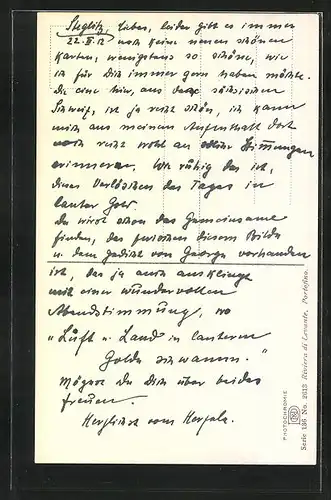 Steglitz, Lieber, leider gibt es immer
22. II. 12 noch keine neuen schönen
Karten, wenigstens so schöne, wie
ich für Dich immer gern haben möchte.
Die eine hier, aus der
Schweiz, ist ja recht schön, ich kann
mich aus meinem Aufenthalt dort
noch recht wohl an Stimmungen
erinnern. Wie ruhig das ist,
dieses Verlöschen des Tages in
lauter Gold.
Du wirst schon das Gemeinsame
finden, das zwischen diesem Bilde
u. dem Gedicht von George vorhanden
ist, das ja auch ausklingt
mit einer wundervollen
Abendstimmung, wo
„Luft u. Land in lauterem
Golde schwamm."
Mögest Du Dich über beides
freuen.
Herzlichst vom
PHOTOCHROMIE
Serie 186 No. 2613 Riviera di Levante. Portofino.